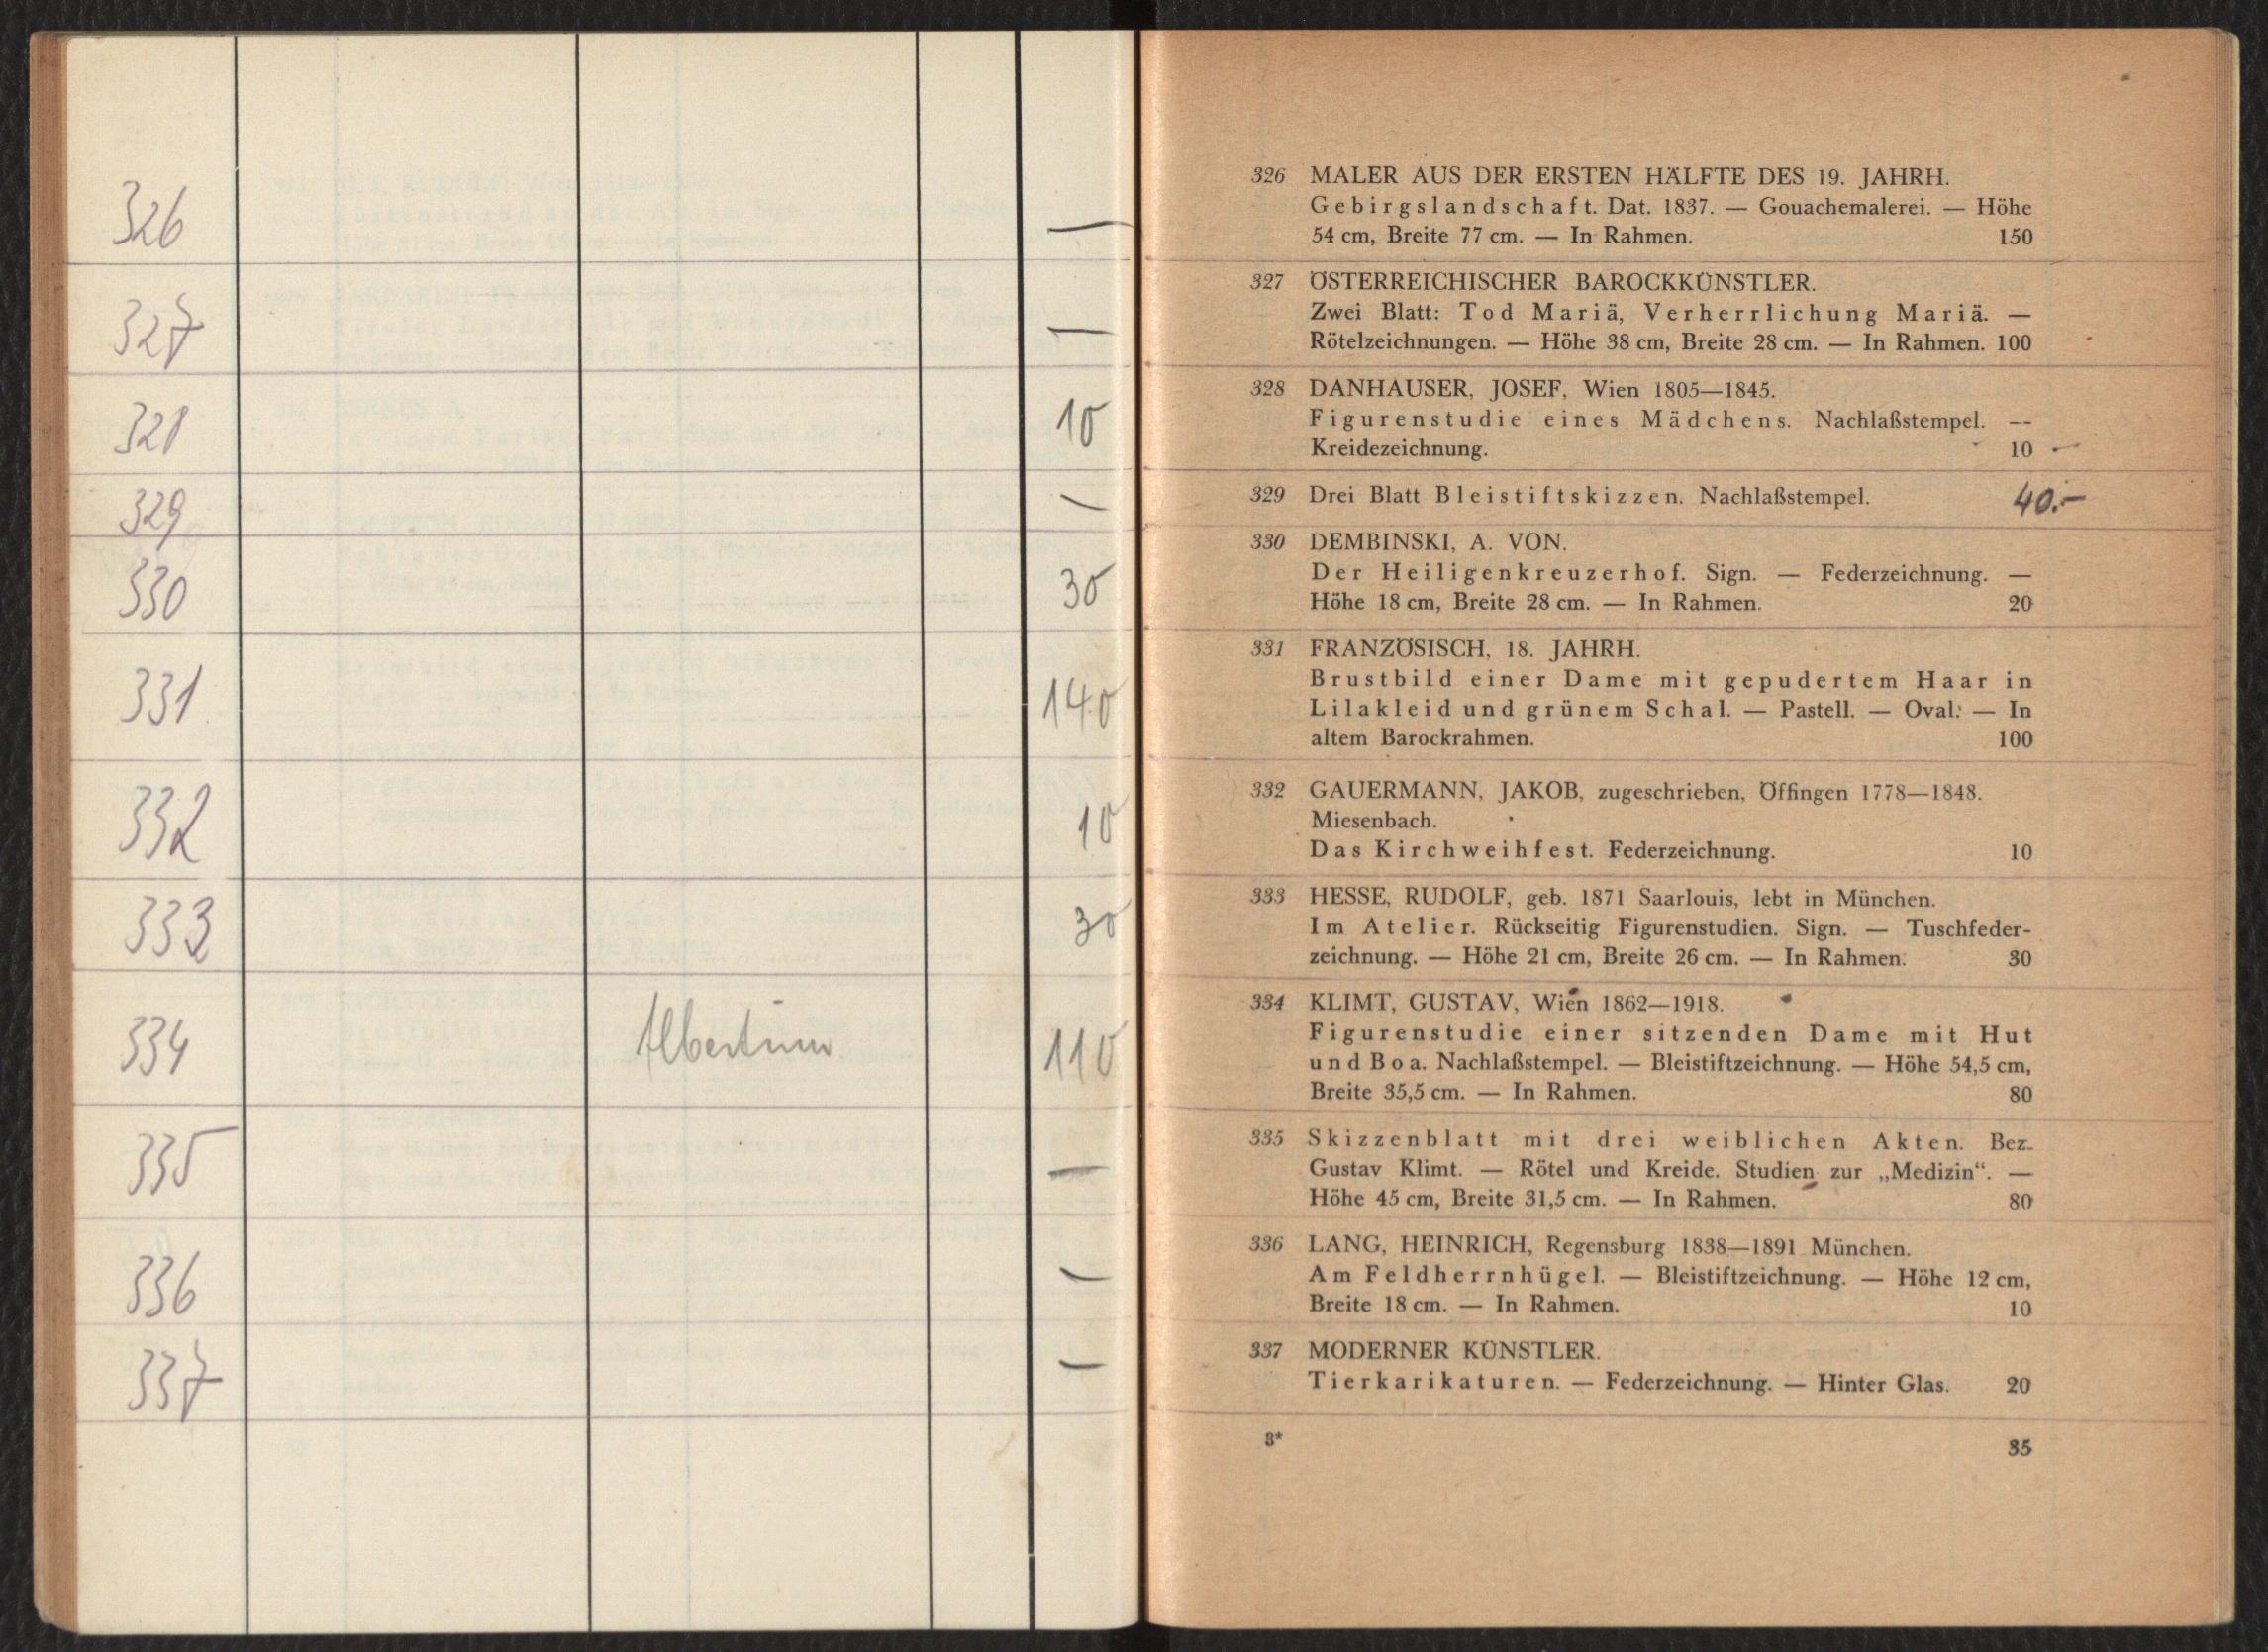 326 —
327 —
328 10
329 —
330 30
331 140
332 10
333 30
334 Albertina 110
335 —
336 —
337 —
326 MALER AUS DER ERSTEN HÄLFTE DES 19. JAHRH.
Gebirgslandschaft. Dat. 1837. — Gouachemalerei. — Höhe
54 cm, Breite 77 cm. — In Rahmen. 150
327 ÖSTERREICHISCHER BAROCKKÜNSTLER.
Zwei Blatt: Tod Mariä, Verherrlichung Mariä. —
Rötelzeichnungen. — Höhe 38 cm, Breite 28 cm. — In Rahmen. 100
328 DANHAUSER, JOSEF, Wien 1805—1845.
Figurenstudie eines Mädchens. Nachlaßstempel. —
Kreidezeichnung. 10 —
329 Drei Blatt Bleistiftskizzen. Nachlaßstempel. 40.-
330 DEMBINSKI, A. VON.
Der Heiligenkreuzerhof. Sign. — Federzeichnung. —
Höhe 18 cm, Breite 28 cm. — In Rahmen. 20
331 FRANZÖSISCH, 18. JAHRH.
Brustbild einer Dame mit gepudertem Haar in
Lilakleid und grünem Schal. — Pastell. — Oval. — In
altem Barockrahmen. 100
332 GAUERMANN, JAKOB, zugeschrieben, Öffingen 1778—1848.
Miesenbach.
Das Kirchweihfest. Federzeichnung. 10
333 HESSE, RUDOLF, geb. 1871 Saarlouis, lebt in München.
Im Atelier. Rückseitig Figurenstudien. Sign. — Tuschfeder-
zeichnung. — Höhe 21 cm, Breite 26 cm. — In Rahmen. 30
334 KLIMT, GUSTAV, Wien 1862—1918.
Figurenstudie einer sitzenden Dame mit Hut
und Boa. Nachlaßstempel. — Bleistiftzeichnung. — Höhe 54,5 cm,
Breite 35,5 cm. — In Rahmen. 80
335 Skizzenblatt mit drei weiblichen Akten. Bez.
Gustav Klimt. — Rötel und Kreide. Studien zur „Medizin“. —
Höhe 45 cm, Breite 31,5 cm. — In Rahmen. 80
336 LANG, HEINRICH, Regensburg 1838—1891 München.
Am Feldherrnhügel. — Bleistiftzeichnung. — Höhe 12 cm,
Breite 18 cm. — In Rahmen. 10
337 MODERNER KÜNSTLER.
Tierkarikaturen. — Federzeichnung. — Hinter Glas. 20
3* 35